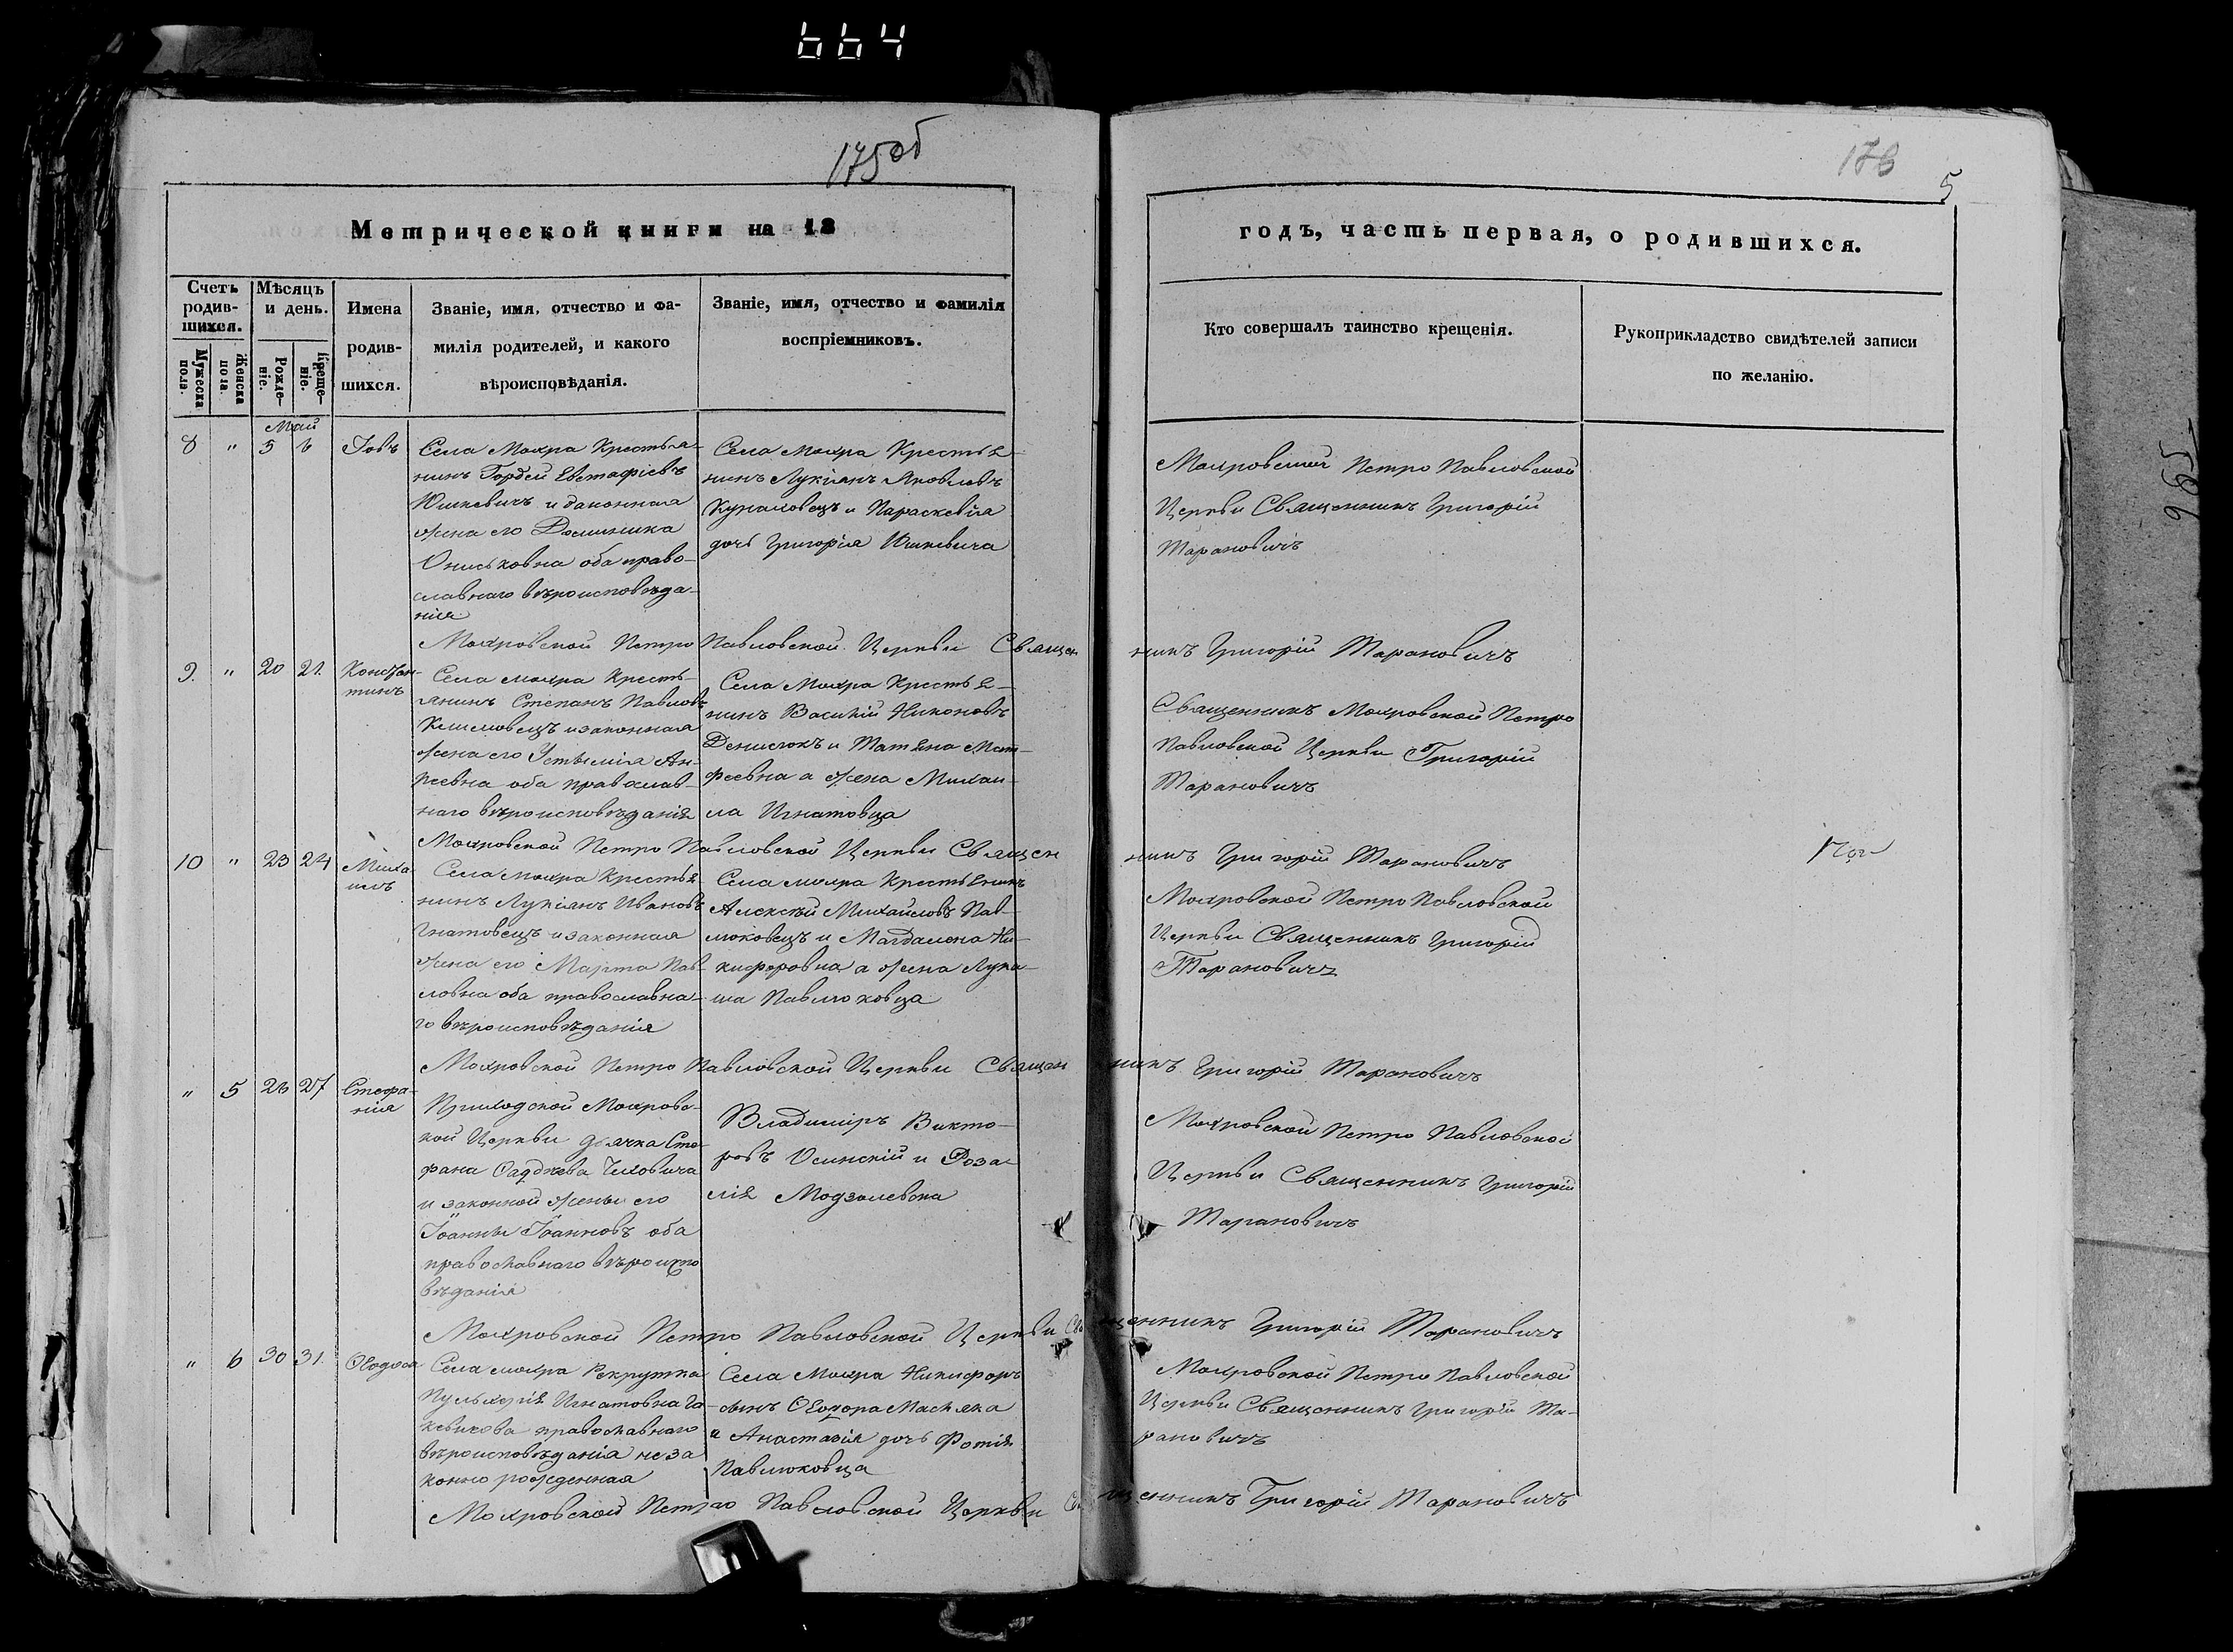 664
175об
176
5
Метрической книги на 18
годъ, часть первая, о родившихся.
Счетъ родив-шихся.
Мужеска пола.
Женска пола.
Мѣсяцъ и день.
Рожде-ніе.
Креще-ніе.
Имена
родив-
шихся.
Званіе, имя, отчество и фа-
милія родителей, и какого
вѣроисповѣданія.
Званіе, имя, отчество и фамилія
воспріемниковъ.
Кто совершалъ таинство крещенія.
Рукоприкладство свидѣтелей записи
по желанію.
Май
8 " 5 6 Іовъ
Села Мохра Крестья-
нинъ Гордей Евстафіевъ
Юшкевичъ и законная
жена его Домника
Ониськовна оба право-
славнаго вѣроисповѣда-
нія
Села Мохра Крестья-
нинъ Лукіанъ Яковлевъ
и Параскевія
дочь Григорія Юшкевича
Мохровской Петро Павловской
Церкви Священникъ Григорій
Тарановичъ
Мохровской Петро Павловской Церкви Священникъ Григорій Тарановичъ
9. " 20 21. Констан-
тинъ
Села Мохра Кресть-
янинъ Степанъ Павловъ
Климовецъ и законная
жена его
оба православ-
наго вѣроисповѣданія
Села Мохра Крестья-
нинъ Василій Никоновъ
Денисюкъ и Татьяна Мат-
феевна а жена Михаи-
ла Игнатовца
Священникъ Мохровской Петро
Павловской Церкви Григорій
Тарановичъ
Мохровской Петро Павловской Церкви Священникъ Григорій Тарановичъ
10 " 23 24 Миха
илъ
Села Мохра Крестья
нинъ Лукіанъ Ивановъ
Гнатовецъ и законная
жена его Марта Пав-
ловна оба православна-
го вѣроисповѣданія
Села Мохра Крестьянинъ
Алексѣй Михайловъ Пав-
люковецъ и Магдалена Ни-
кифоровна а жена Лука-
ша Павлюковца
Мохровской Петро Павловской
Церкви Священникъ Григорій
Тарановичъ
Мохровской Петро Павловской Церкви Священникъ Григорій Тарановичъ
" 5 26 27 Стефа-
нія
Приходской Мохровс-
кой Церкви дьячка Сте-
фана
и законной жены его
Іоанны Іоанновъ оба
православнаго вѣроиспо
вѣданія
Владиміръ Викто-
ровъ Осинскій и Роза-
лія Модзолевска
Мохровской Петро Павловской
Церкви Священникъ Григорій
Тарановичъ
Мохровской Петро Павловской Церкви Священникъ Григорій Тарановичъ
" 6 30 31. Ѳеодося
Села Мохра Рекрутка
Пульхерія Игнатовна
православнаго
вѣроисповѣданія неза
конно рожденная
Села Мохра Никифоръ
сынъ Ѳеодора Масюка
и Анастазія дочь Фотія
Павлюковца
Мохровской Петро Павловской
Церкви Священникъ Григорій Та-
рановичъ
Мохровской Петро Павловской Церкви Священникъ Григорій Тарановичъ